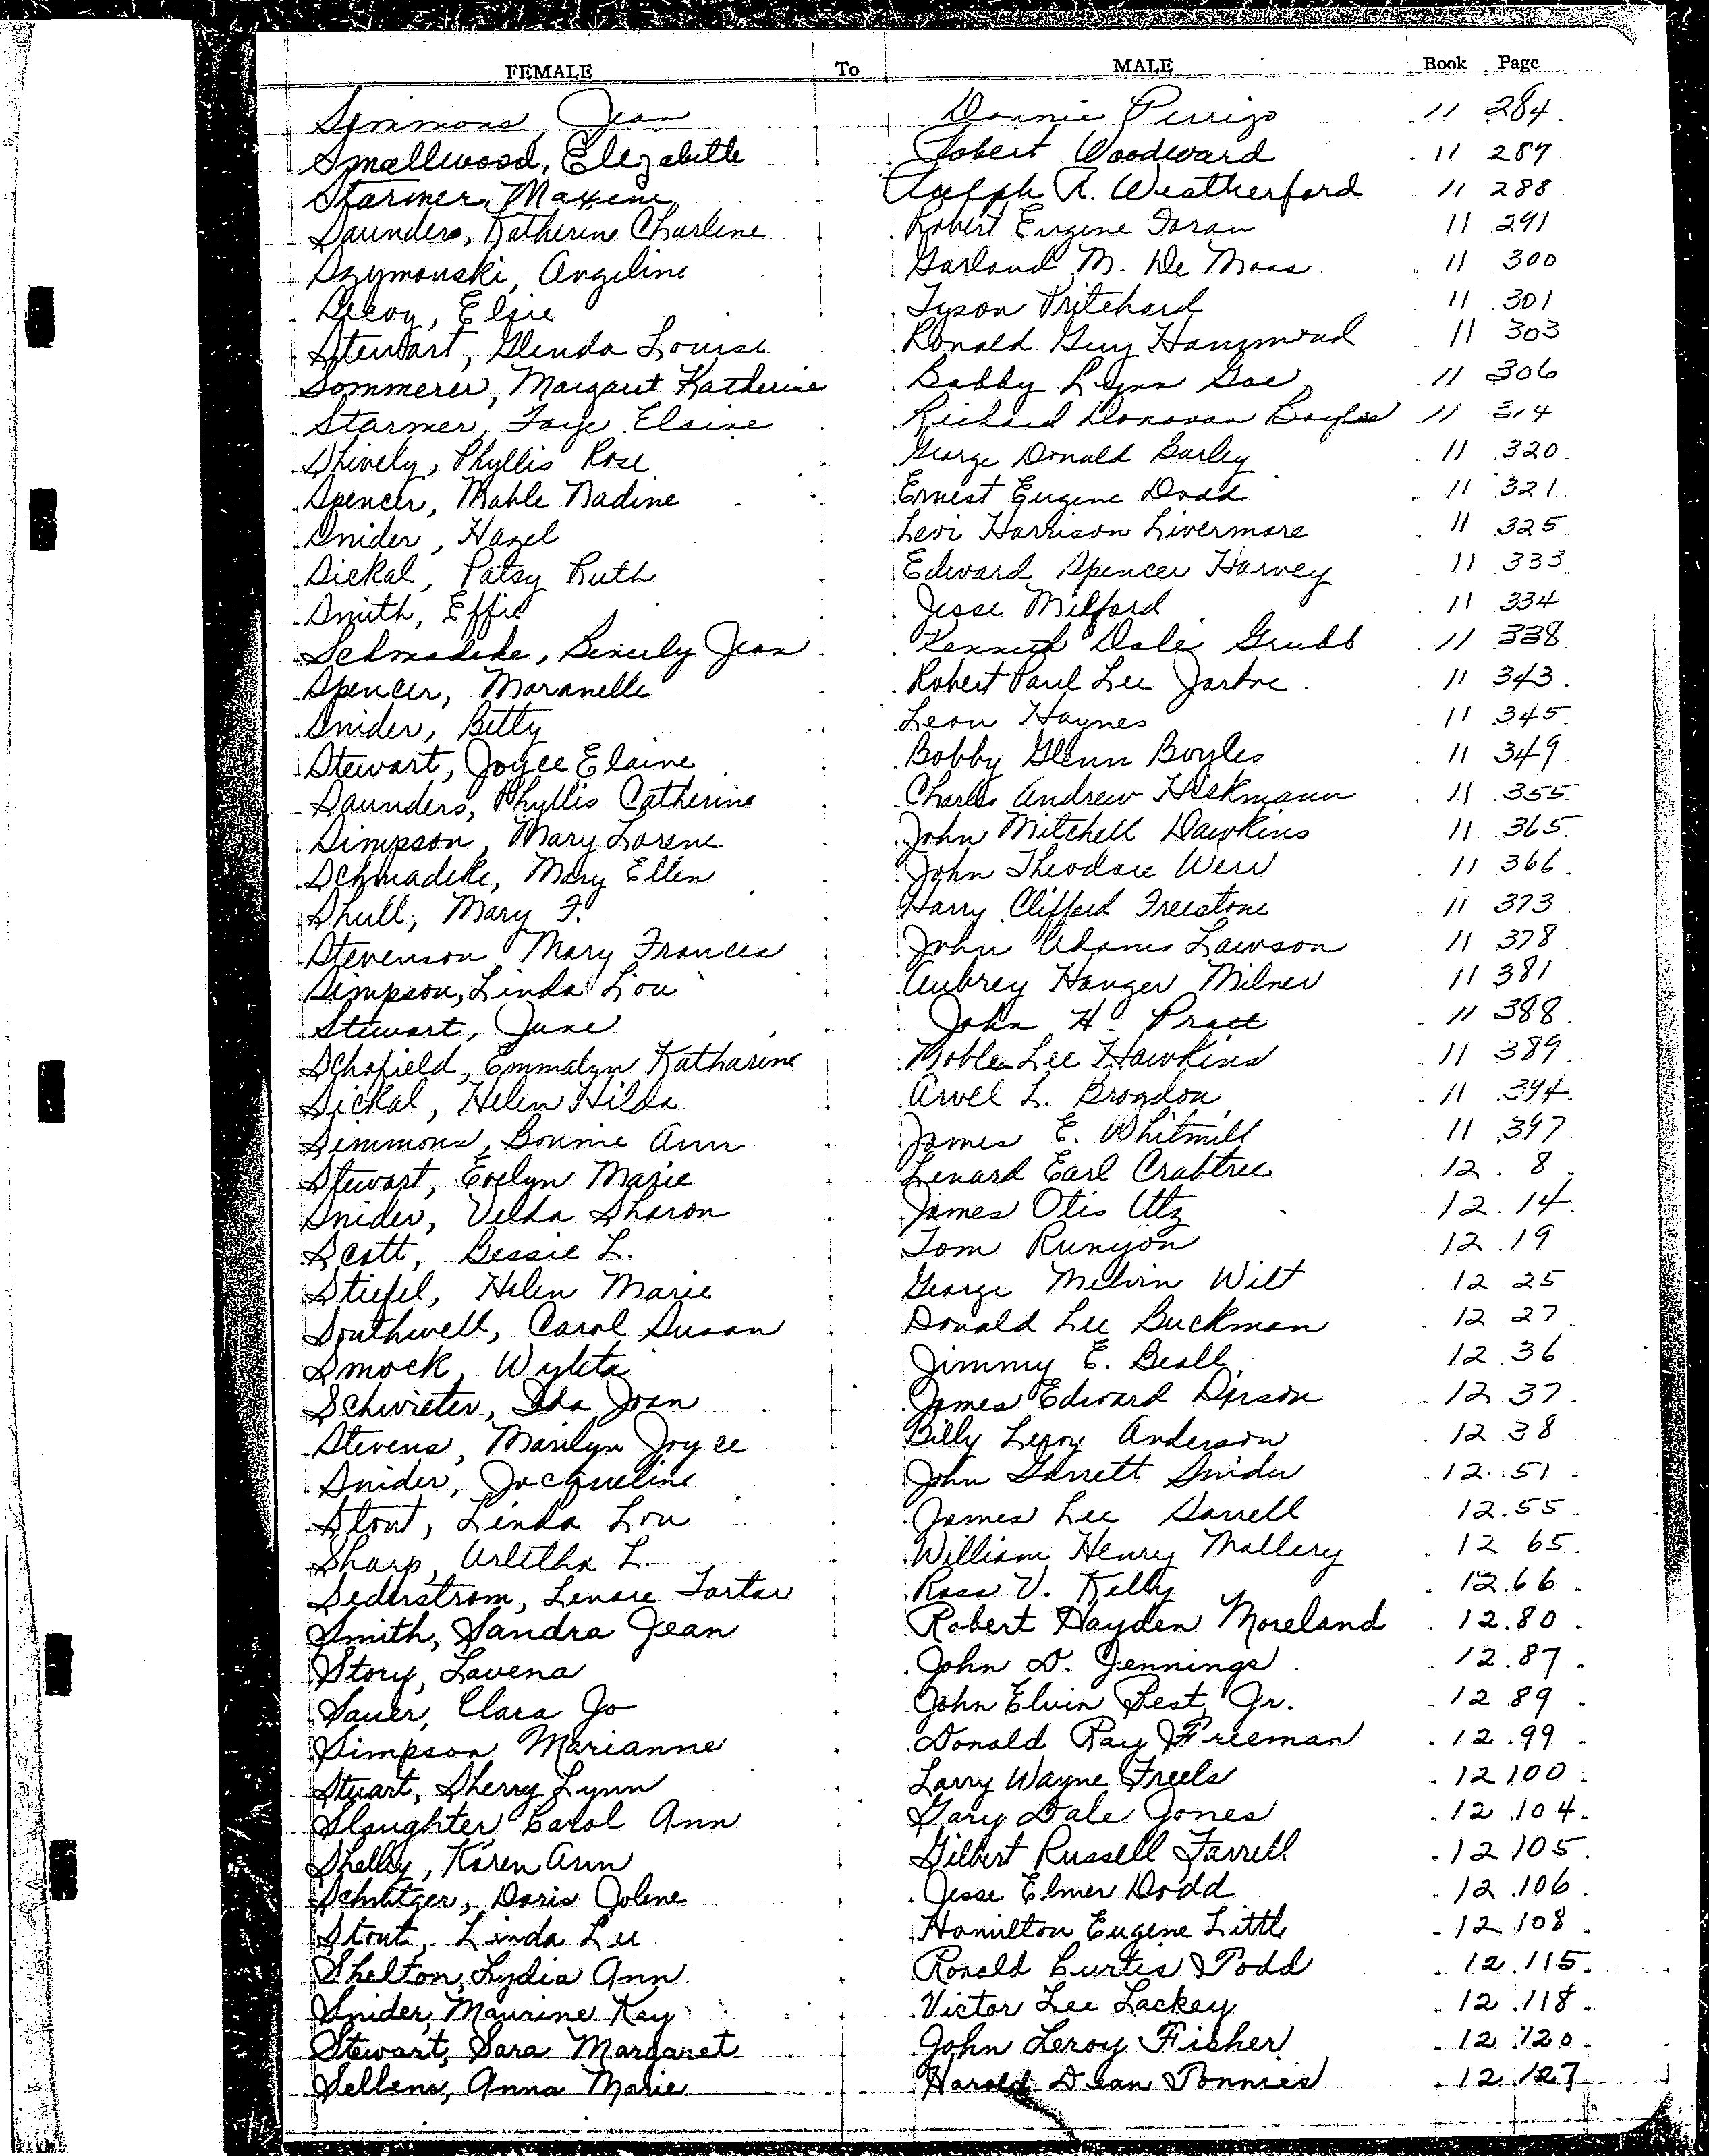 FEMALE To MALE Book Page
Simmons, Jean Donnie Perrigo 11 284
Smallwood, Elizabeth Robert Woodward 11 287
Starmer, Maxine Ralph R. Weatherford 11 288
Saunders, Katherine Charlene Robert Eugene Foran 11 291
Szymanski, Angeline Garland M. De Moss 11 300
Elsie Tyson Pritchard 11 301
Stewart, Glenda Louise Ronald Guy Hammond 11 303
Sommerer, Margaret Katherine Bobby Lynn Goe 11 306
Starmer, Faye Elaine Richard Donovan Boyles 11 314
Shively, Phyllis Rose George Donald Barley 11 320
Spencer, Mable Nadine Ernest Eugene Dodd 11 321
Snider, Hazel Levi Harrison Livermore 11 325
Sickal, Patsy Ruth Edward Spencer Harvey 11 333
Smith, Effie Jesse Milford 11 334
Schmadeke, Beverly Jean Kenneth Dale Grubb 11 338
Spencer, Maranelle Robert Paul Lee Jarboe 11 343
Snider, Betty Leon Haynes 11 345
Stewart, Joyce Elaine Bobby Glenn Boyles 11 349
Saunders, Phyllis Catherine Charles Andrew Hickmann 11 355
Simpson, Mary Lorene John Mitchell Dawkins 11 365
Schmadeke, Mary Ellen John Theodore 11 366
Shull, Mary F. Harry Clifford Freestone 11 373
Stevenson Mary Frances John Adams Lawson 11 378
Simpson, Linda Lou Aubrey Hanger Milner 11 381
Stewart, June John H. Pratt 11 388
Schofield, Emmalyn Katharine Noble Lee Hawkins 11 389
Sickal, Helen Hilda Arvel L. Brogdon 11 394
Simmons, Bonnie Ann James E. Whitmill 11 397
Stewart, Evelyn Marie Lenard Earl Crabtree 12 8
Snider, Velda Sharon James Otis Utz 12 14
Scott, Bessie L. Tom Runyon 12 19
Stiefel, Helen Marie George Melvin Wilt 12 25
Southwell, Carol Susan Donald Lee Buckman 12 27
Smock, Wyleta Jimmy E. Beall 12 36
Schwieter, Ida Joan James Edward 12 37
Stevens, Marilyn Joyce Billy Leroy Anderson 12 38
Snider, Jacqueline John Garrett Snider 12 51
Stout, Linda Lou James Lee Sarrell 12 55
Sharp, Arletha L. William Henry Mallery 12 65
Sederstrom, Lenore Tarter Ross V. Kelly 12 66
Smith, Sandra Jean Robert Hayden Moreland 12 80
Story, Lavena John D. Jennings 12 87
Sauer, Clara Jo John Elvin Best, Jr. 12 89
Simpson Marianne Donald Ray Freeman 12 99
Stuart, Sherry Lynn Larry Wayne Freels 12 100
Slaughter, Carol Ann Gary Dale Jones 12 104
Shelby, Karen Ann Gilbert Russell Farrell 12 105
Schnitger, Doris Jolene Jesse Elmer Dodd 12 106
Stout, Linda Lee Hamilton Eugene Little 12 108
Shelton, Lydia Ann Ronald Curtis Todd 12 115
Snider, Maurine Kay Victor Lee Lackey 12 118
Stewart, Sara Margaret John Leroy Fisher 12 120
Sellens, Anna Marie Harold Dean Tonnies 12 127